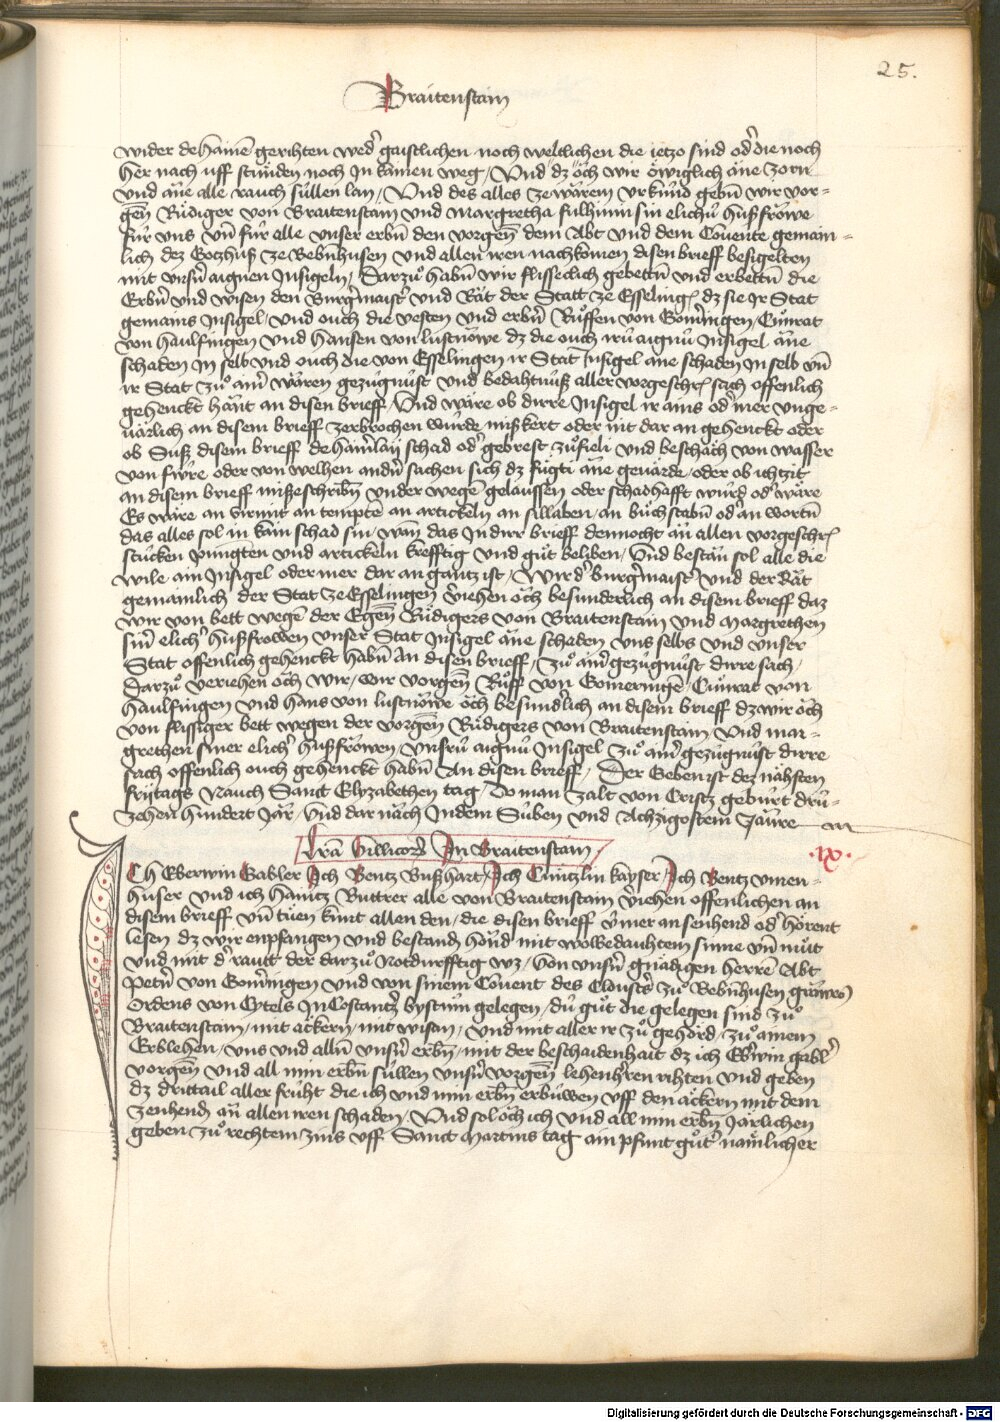 25.
Braitenstain
wider dehainē gerihten wed᷑ gaistlichen noch weltlichen die ietzo sind od᷑ die noch
her nach uff stunden noch In kainen weg / Und dz öch wir öwiglich āne zorn
und āne alle rauch süllen lan / Und des alles ze wārem urkund gebn̄ wir vor-
gen̄ Rüdiger von Braitenstain und Margretha sin elichü hußfröwe
für uns un̄ für alle unser erbn̄ den vorgen̄ dem Abt und dem Covente gemain-
lich dez Gotzhuß ze Bebn̄husen und allen iren nachkomen disen brieff besigelten
mit unsn̄ aignen Insigeln / Darzuͦ habn̄ wir flisseclich gebettn̄ und erbettn̄ die
Erbn̄ und wisen den Burg᷑maist᷑ und Rāt der Statt ze Esselinḡ dz sie Ir Stat
gemains Insigel / Und ouch die vesten und erbn̄ Ruͦffen von Gom̄ingen / Cuͦnrat
von Haulfingen Und Hansen von Lustnöwe dz die ouch irü aignü Insigel āne
schaden In selb und ouch die von Esselingen ir Stat Insigel āne schaden In selb un̄
ir Stat zuͦ aim᷑ wāren gezügnüst und bedahtnüß aller vorgeschr̄ sach offenlich
gehenckt hānt an disen brieff / Und wāre ob dirre Insigel ir ains od᷑ mer unge-
uārlich an disem brieff zerbrochen wurde mißkert oder nit dar an gehenckt oder
ob Suß disem brieff dehain᷑laij schad od᷑ gebrest zuͦfieli und beschāch von wasser
von fiwre oder von welhen andn̄ sachen sich dz fügti āne geuārde / oder ob ichtzit
an disem brieff mißeschribn̄ under wegē gelaussen oder schadhafft wurd᷑ od᷑ wāre
Es wāre an birmit an tempte an artickeln an sillaben / an buͦchstabn̄ od᷑ an wortn̄
das alles sol in kain schad sin / wan̄ das In dirr brieff dennocht an allen vorgeschr̄
stucken pungten und artickeln krefftig und guͦt beliben / Und bestān sol alle die
wile ain Insigel oder mer dar an gantz ist / Wir d᷑ burg᷑maist᷑ und der Rāt
gemainlich der Stat ze Esselingen v̄iehen öch besunderlich an disem brieff daz
wir von bett wegē der Egen̄ Rüdigers von Braitenstain und Margrethen
sin᷑ elich᷑ hußfrowen unser Stat Insigel āne schaden uns selbs und unser
Stat offenlich gehenckt habn̄ An disen brieff / zuͦ aim᷑ gezügnüst dirre sach /
Darzuͦ veriehen öch wir / wir vorgen̄ Ruͦff von Gomeringē / Cuͦnrat von
Haulfingen und Hans von Lustnöwe öch besund᷑lich an disem brieff dz wir öch
von flissiger bett wegen der vorgen̄ Rüdigers von Braitenstain Und Mar-
grethen siner elich᷑ hußfröwen / unsrü aignü Insigel zuͦ aim᷑ gezügnüst dirre
sach offenlich ouch gehenckt habn̄ An disen brieff / Der Geben ist dez nāhsten
frijtags Nauch Sanct Elyzabethen tag / Do man zalt von Cristz geburt drü-
zehen hundert Jār / Und dar nāch Indem Süben und Achzigostem Jaure
Lr̄a Villicor̄ In Braitenstain
.ix.
ICH Eberwin Gabler Ich Bentz Bußhart / Ich Cüntzlin kayser / Ich Bentz vmen-
huser und ich Haintz Buttrer alle von Braitenstain v̄iehen offenlichen an
disem brieff un̄ tuen kunt allen den / die disen brieff ümer ansenhend od᷑ hörent
lesen dz wir enpfangen und bestand᷑ hond mit wolbedauhtem sinne un̄ muͦt
und mit d᷑ rautt der darzuͦ Notdurfftig wz / von unsn̄ gnādigen herren Abt
Petn̄ von Gom̄ingen und von sinem Covent des Clost᷑s zuͦ Bebn̄husen grāwes
ordens von Cytels In Costantz᷑ bystum gelegen / dü guͦt die gelegen sind zuͦ
Braitenstain / mit āckern / mit wisan / und mit aller ir zuͦ gehörd / zuͦ ainem
Erblehen / uns und alln̄ unsn̄ erbn̄ / mit der beschaidenhait dz ich Eb᷑win gabl᷑
vorgen̄ und all min erbn̄ süllen unsn̄ vorgen̄ lehenh᷑ren rihten und geben
dz drittail aller fruht die ich und min erbn̄ erbuwen uff den āckern mit dem
zenhend᷑ an allen iren schaden / Und sol öch ich und all min erbn̄ Jārlichen
geben zuͦ rechtem zins uff Sanct Martins tag ain pfunt guͦt᷑ nāmlicher
Digitalisierung gefördert durch die Deutsche Forschungsgemeinschaft - DFG